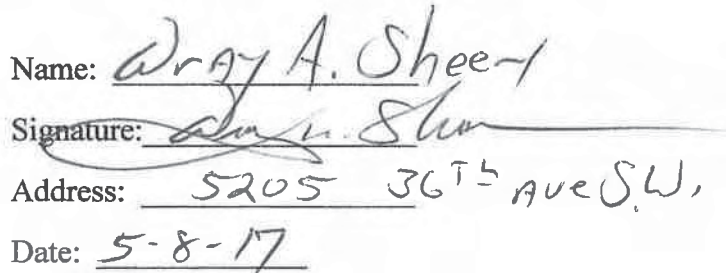 Name: Wray A. Sheer
Signature:
Address: 5205 36Th Ave S.W.
Date: 5-8-17